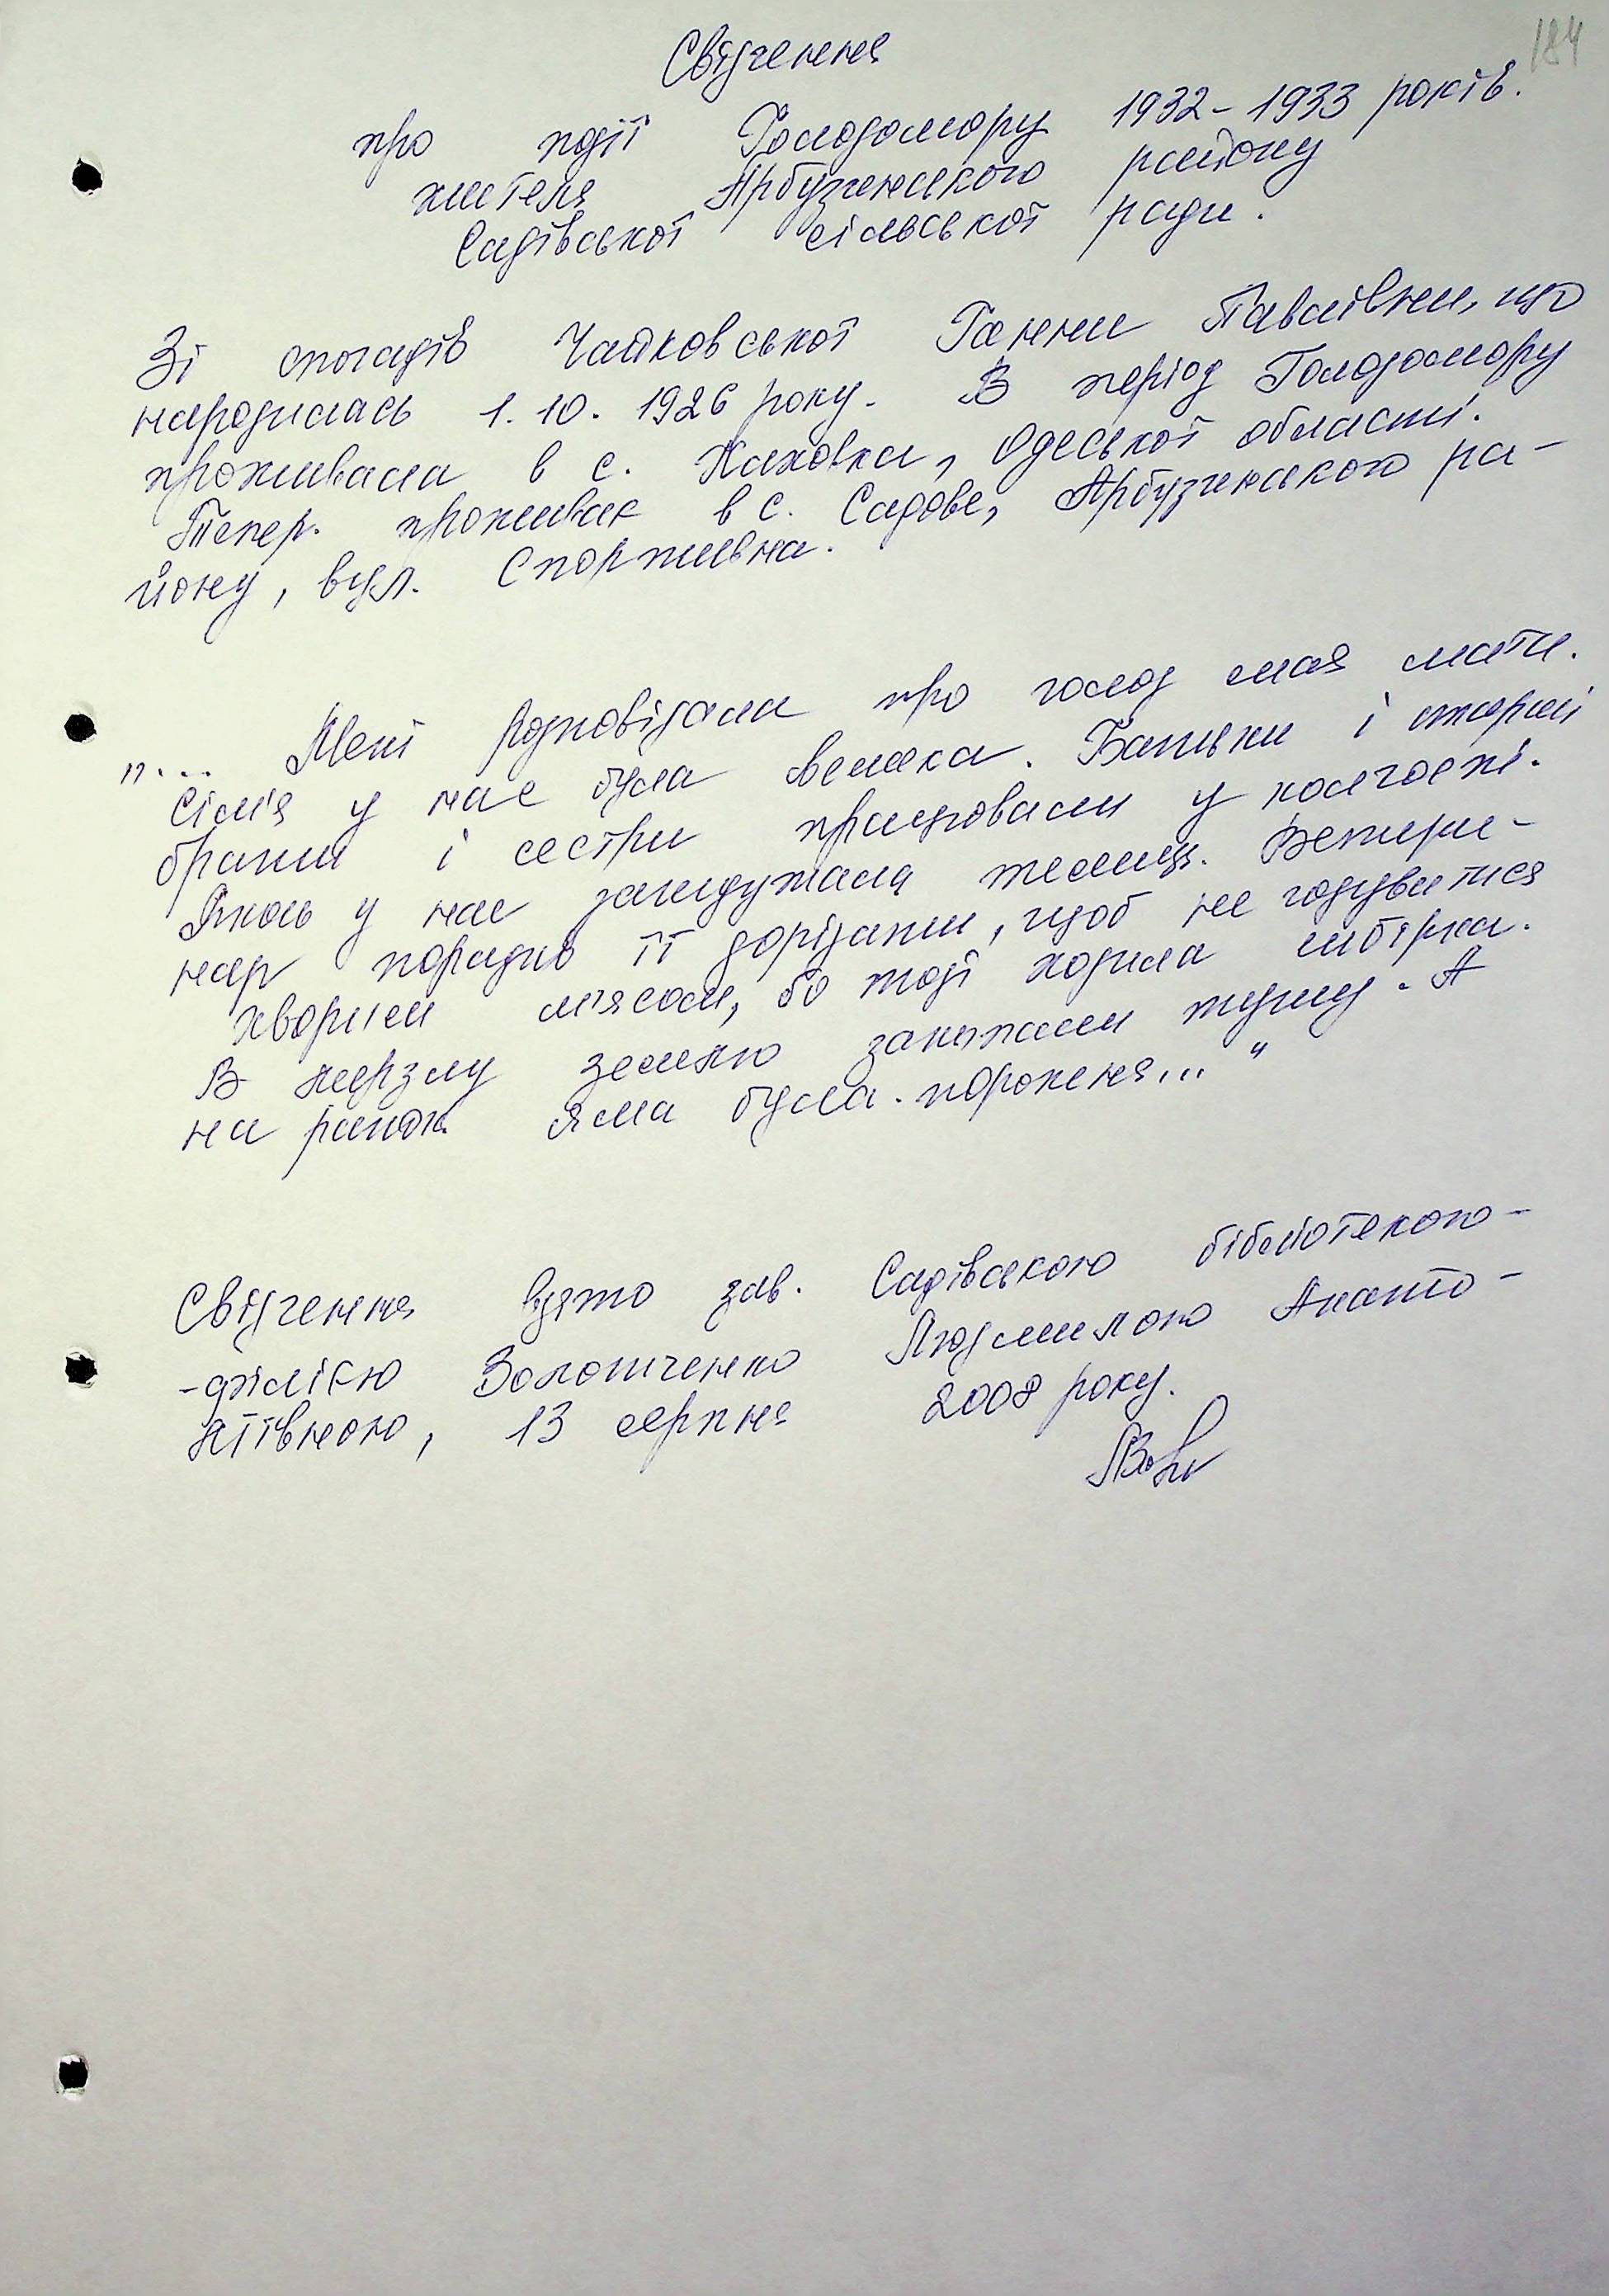 184
Свідчення
про події Голодомору 1932-1933 років.
жителя Арбузинського району
Садівської сільської ради.
Зі спогадів Чайковської Ганни Павлівни, що
народилась 1.10.1926 року. В період Голодомору
проживала в с. Каховка, Одеської області.
Тепер проживає в с. Садове, Арбузинського ра-
йону, вул. Спортивна.
"... Мені розповідала про голод моя мати.
Сім'я у нас була велика. Батьки і старші
брати і сестри працювали у колгоспі.
Якось у нас занедужала телиця. Ветери-
нар порадив її дорізати, щоб не годуватися
хворим м'ясом, бо тоді ходила сибірка.
В мерзлу землю закопали тушу. А
на ранок яма була порожня..."
Свідчення взято зав. Садівською бібліотекою-
-філією Волошченко Людмилою Анато-
ліївною, 13 серпня 2008 року.